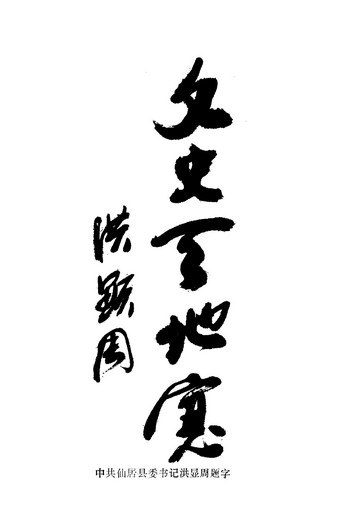 文史天地寬
洪顕周
中共仙居县委书记洪显周题字